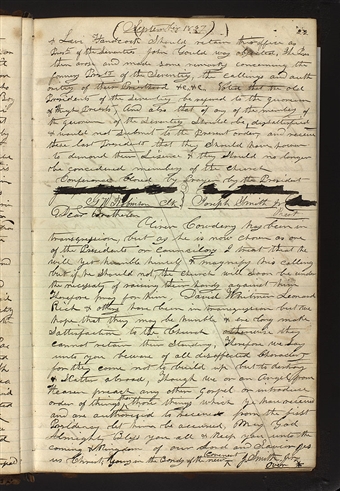 (September 1837)
& Levi Hancock Should retain his office as
Prest of the Seventies. John Gould was objected, The Pres
then arose and made some remarks concerning the
former Prests of the Seventies, the callings and auth
ority of their Priesthood &c. &c. Voted that the old
Presidents of the Seventies be refered to the quorum
of High Priests, And also that if any of the members of
the quorum of the Seventies Should be dissatisfied
& would not Submit to the present order, and receive
these last Presidents that they Should have power
to demand their Lisence & they Should no longer
be concidered members of the church
Conference Closed by prayer by the President
G W Robinson Joseph Smith Jr
Dear Brotheren
Oliver Cowdery has been in
transgression, but as he is now chosen as one
of the Presidents or Councilors I trust that he
will yet humble himself & magnify his calling
but if he should not, the church will soon be under
the necessaty of raising their hands against him
Therefore pray for him, David Whitmer Leonard
Rich & others have been in transgression but we
hope that they may be humble & ere long make
Satisfaction to the Church otherwise they
cannot retain their Standing, Therefore we Say
unto you beware of all disaffected Characters
for they come not to build up but to destroy
& Scatter abroad, Though we or an Angel from
Heaven preach any other Gospel or introduce
order of things those things which ye have received
and are authorized to received from the first
Presidency let him be accursed, May God
Almighty Bless you all & keep you unto the
coming & kingdom of our Lord and Savior Jes
us Christ; Yours in the Bonds of the new Covenant J Smith Jr
Over